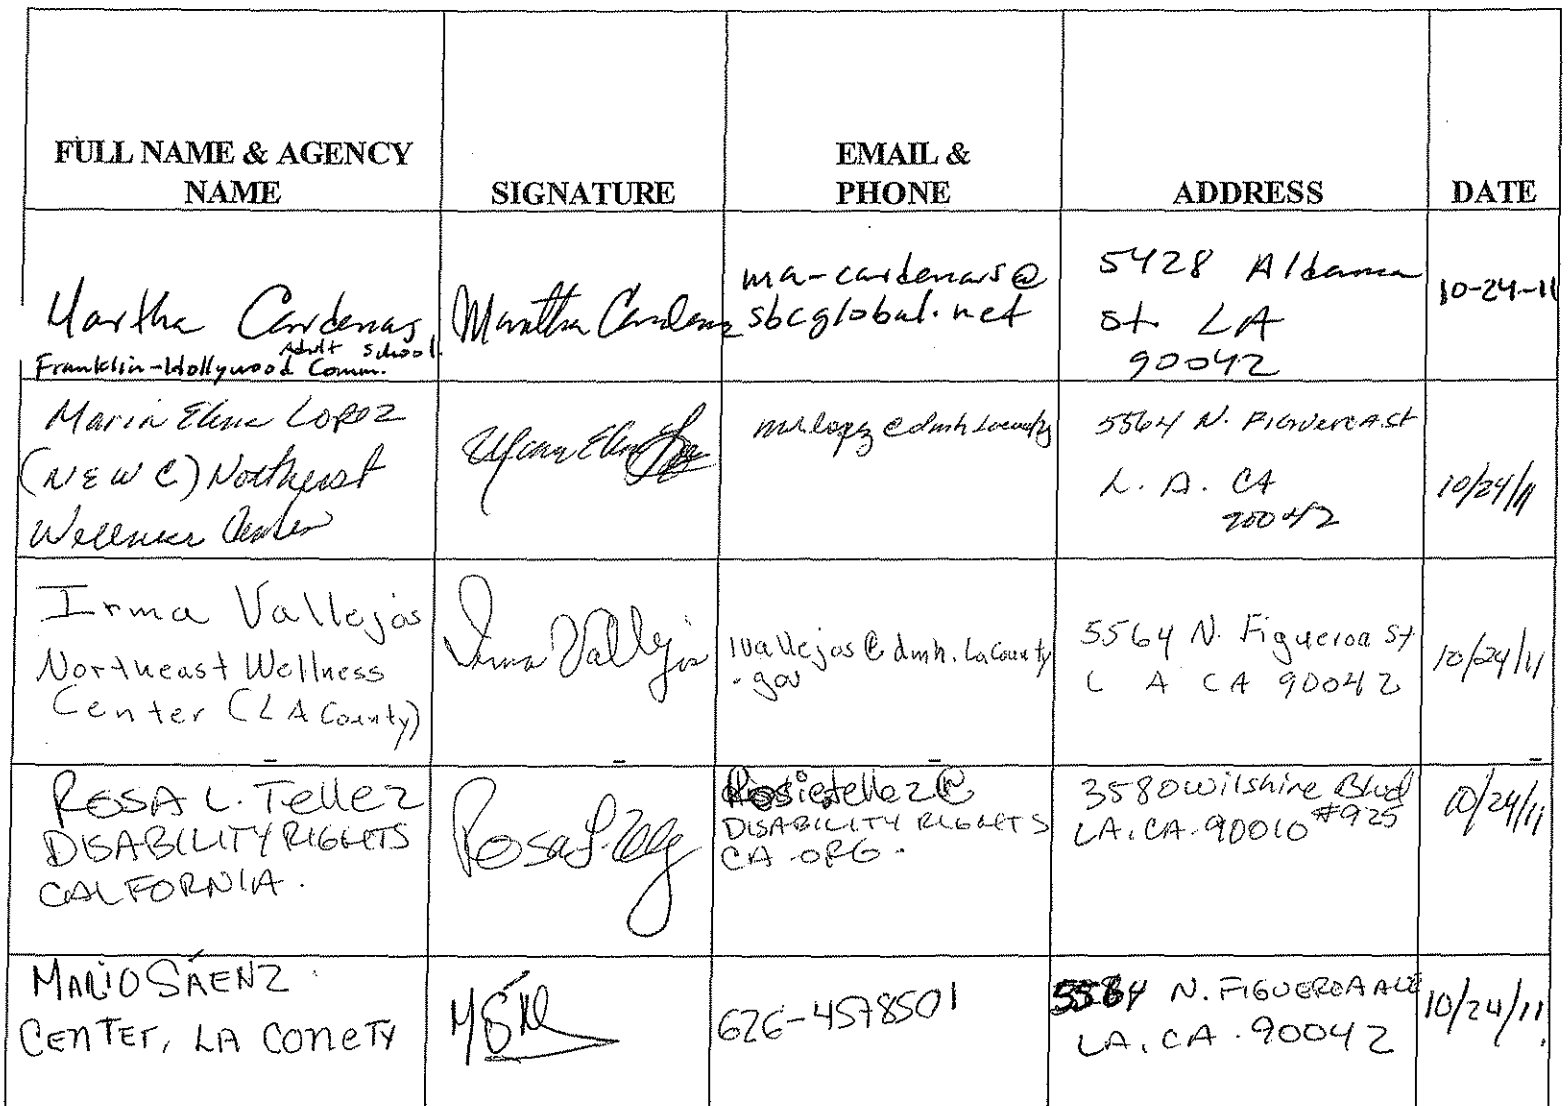 FULL NAME & AGENCY
NAME
SIGNATURE
EMAIL &
PHONE
ADDRESS
DATE
Martha Cardenas
Adult School
Franklin-Hollywood Comm.
Martha Cardenas
ma-cardenas@
sbcglobal.net
5428 Aldama
st. LA
90042
10-24-11
Maria Elena Lopez
(NEWC) Northeast
Wellness Center
Maria Elena
5564 N. Figueroa St
L. A. CA
90042
10/24/11
Irma Vallejos
Northeast Wellness
Center (LA County)
Irma Vallejos
ivallejos@dmh.LaCounty
.gov
5564 N. Figueroa St
L A CA 90042
10/24/11
ROSA L. Tellez
DISABILITY RIGHTS
CALFORNIA.
Rosa L.
Rosie.tellez@
DISABILITY RIGHTS
CA.ORG.
3580 Wilshire Blvd
LA. CA. 90010 #925
10/24/11
MARIO SÁENZ
CENTER, LA CONETY
626-4578501
5564 N. FIGUEROA AVE
LA, CA. 90042
10/24/11